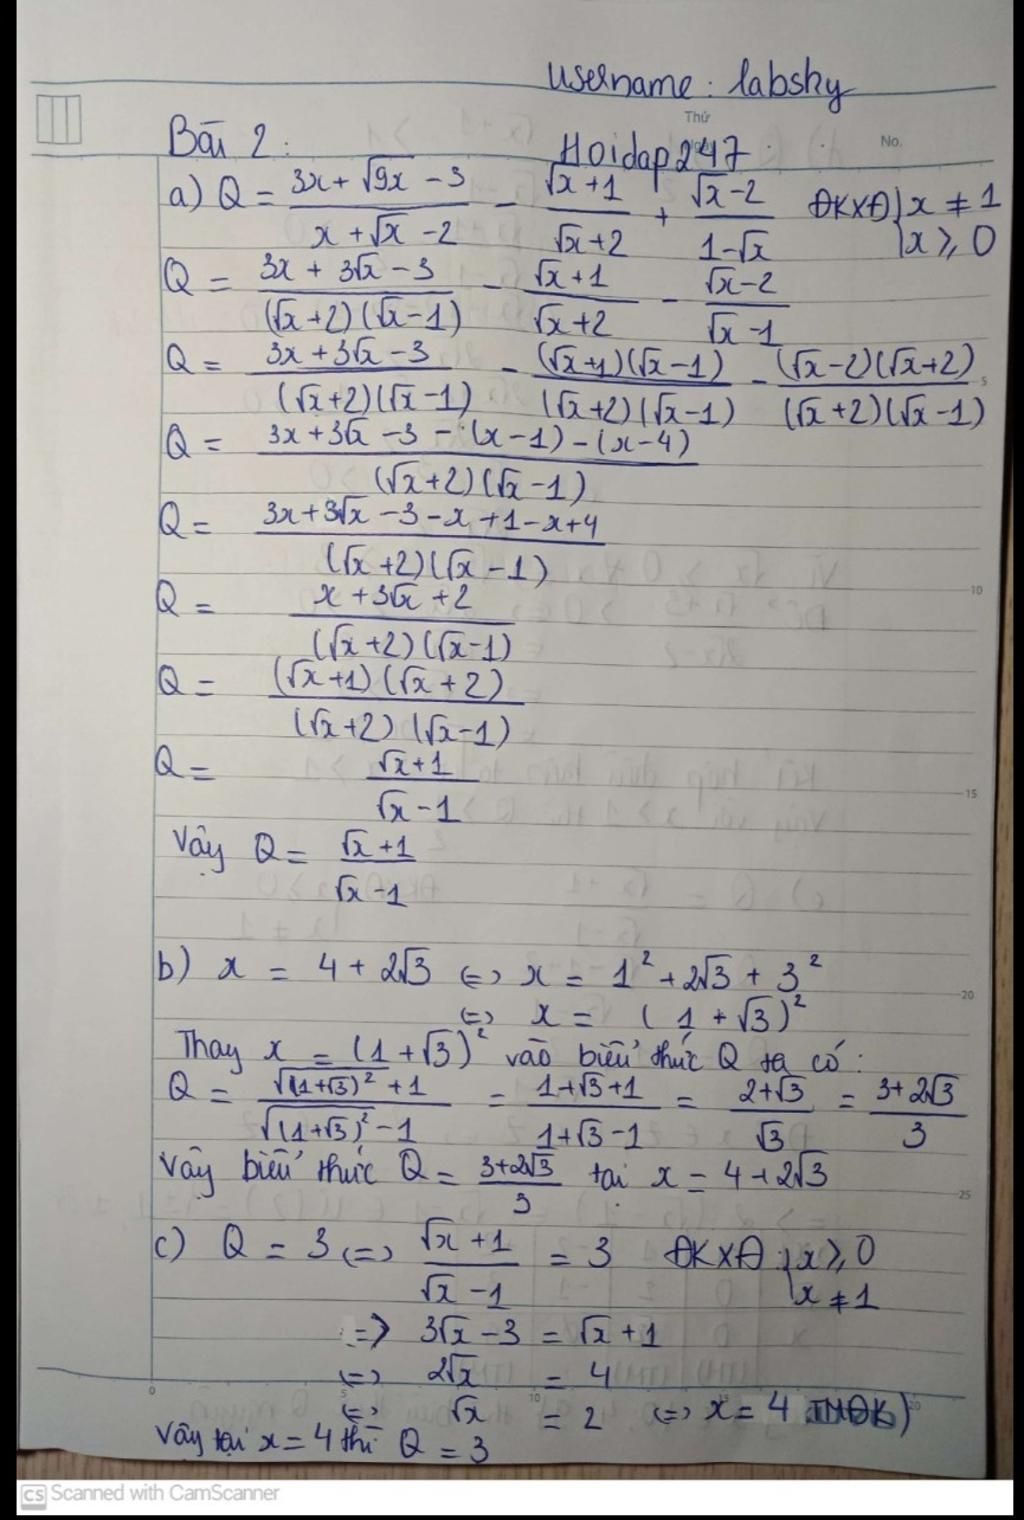 username: labsky
Thứ
Bài 2: Hoidap247 No.
a) Q = (3x + √9x - 3)/(x + √x - 2) - (√x + 1)/(√x + 2) + (√x - 2)/(1 - √x) ĐKXĐ { x ≠ 1
x ≥ 0
Q = (3x + 3√x - 3)/((√x + 2)(√x - 1)) - (√x + 1)/(√x + 2) - (√x - 2)/(√x - 1)
Q = (3x + 3√x - 3)/((√x + 2)(√x - 1)) - ((√x + 1)(√x - 1))/((√x + 2)(√x - 1)) - ((√x - 2)(√x + 2))/((√x + 2)(√x - 1))
5
Q = (3x + 3√x - 3 - (x - 1) - (x - 4))/((√x + 2)(√x - 1))
Q = (3x + 3√x - 3 - x + 1 - x + 4)/((√x + 2)(√x - 1))
10
Q = (x + 3√x + 2)/((√x + 2)(√x - 1))
Q = ((√x + 1)(√x + 2))/((√x + 2)(√x - 1))
Q = (√x + 1)/(√x - 1)
15
Vậy Q = (√x + 1)/(√x - 1)
b) x = 4 + 2√3 <=> x = 1² + 2√3 + 3²
20
<=> x = (1 + √3)²
Thay x = (1 + √3)² vào biểu thức Q ta có:
Q = (√(1+√3)² + 1)/(√(1+√3)² - 1) = (1 + √3 + 1)/(1 + √3 - 1) = (2 + √3)/√3 = (3 + 2√3)/3
Vậy biểu thức Q = (3 + 2√3)/3 tại x = 4 + 2√3
25
c) Q = 3 <=> (√x + 1)/(√x - 1) = 3 ĐKXĐ: { x ≥ 0
x ≠ 1
=> 3√x - 3 = √x + 1
<=> 2√x = 4
0 5 10 15 20
<=> √x = 2 <=> x = 4 TMĐK)
Vậy tại x = 4 thì Q = 3
CS Scanned with CamScanner